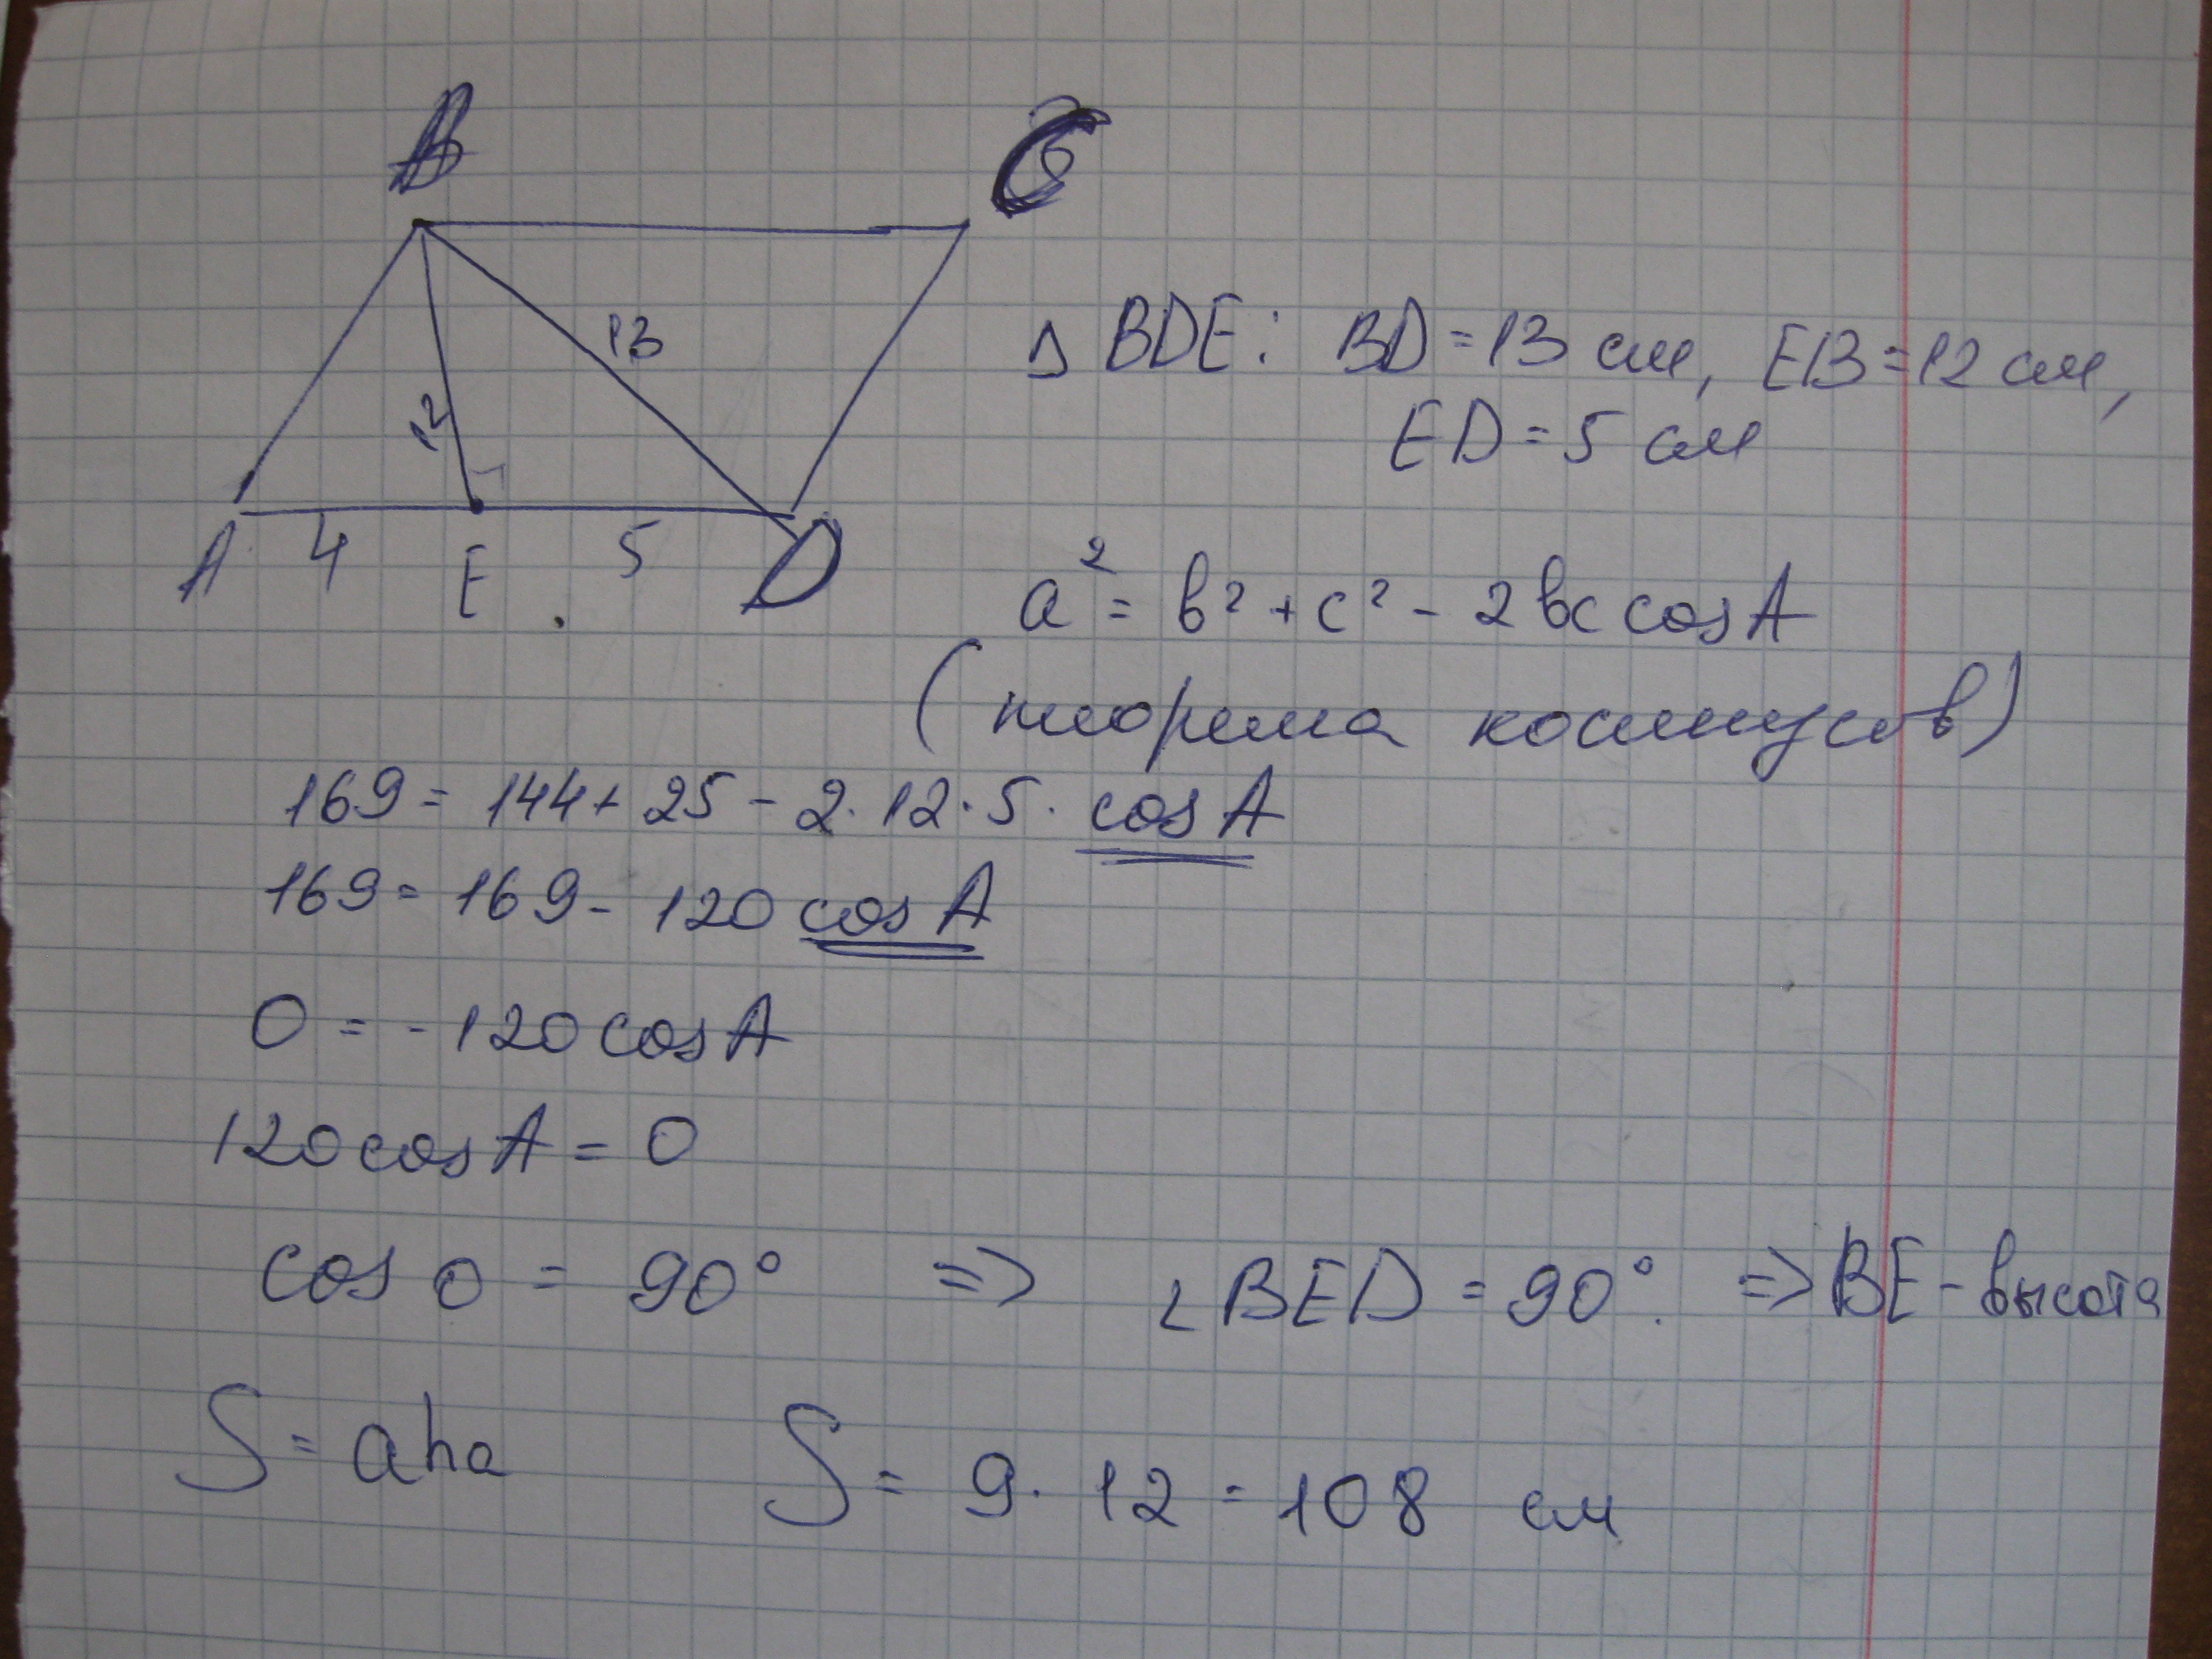 B C
13
12
A 4 E 5 D
Δ BDE: BD = 13 см, EB = 12 см,
ED = 5 см
a² = b² + c² - 2bc cos A
(теорема косинусов)
169 = 144 + 25 - 2·12·5· cos A
169 = 169 - 120 cos A
0 = -120 cos A
120 cos A = 0
cos 0 = 90° => ∠BED = 90°. => BE - высота
S = aha S = 9·12 = 108 см